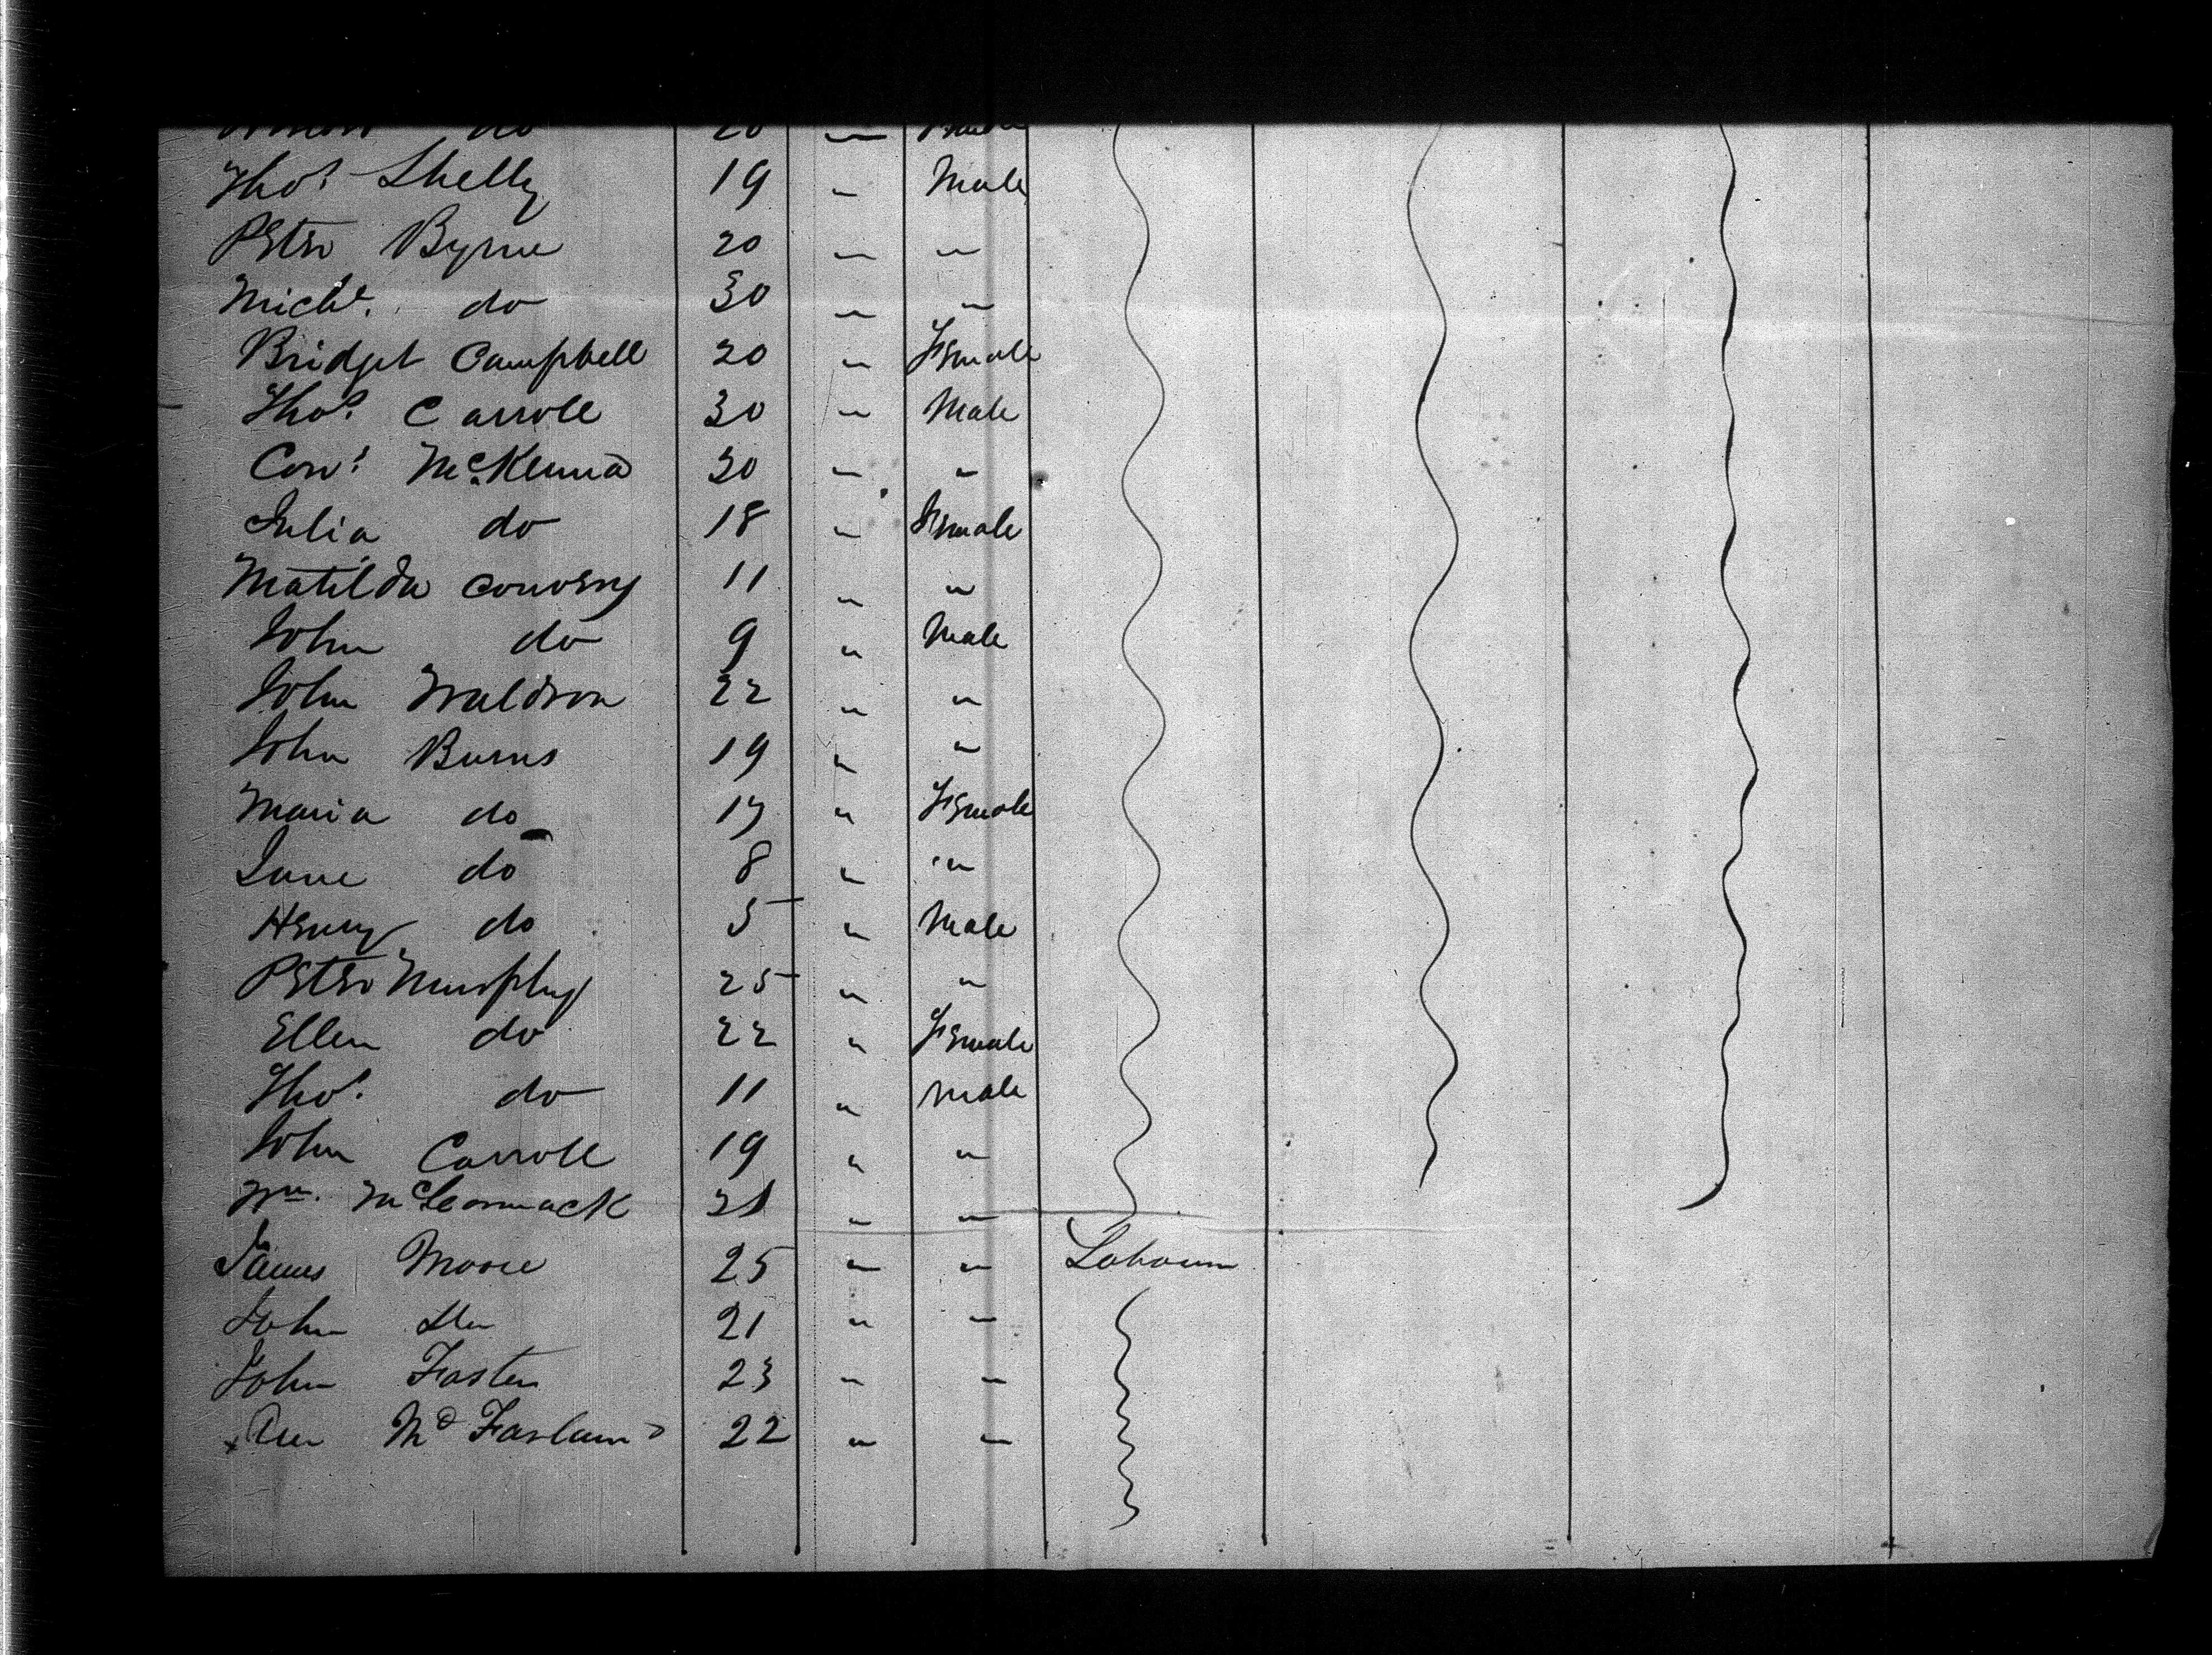 do 20 „
Thos. Shelly 19 „ Male
Peter Byrne 20 „ „
Michl. do 30 „ „
Bridget Campbell 20 „ Female
Thos. Carroll 30 „ Male
Cors. McKenna 30 „ „
Julia do 18 „ Female
Matilda Convery 11 „ „
John do 9 „ Male
John Waldron 22 „ „
John Burns 19 „ „
Maria do 17 „ Female
Jane do 8 „ „
Henry do 5 „ Male
Peter Murphy 25 „ „
Ellen do 22 „ Female
Thos. do 11 „ Male
John Carroll 19 „ „
Wm. McCormack 21 „ „
James Moore 25 „ „ Labourer
John 21 „ „
John Foster 23 „ „
Ann McFarland 22 „ „